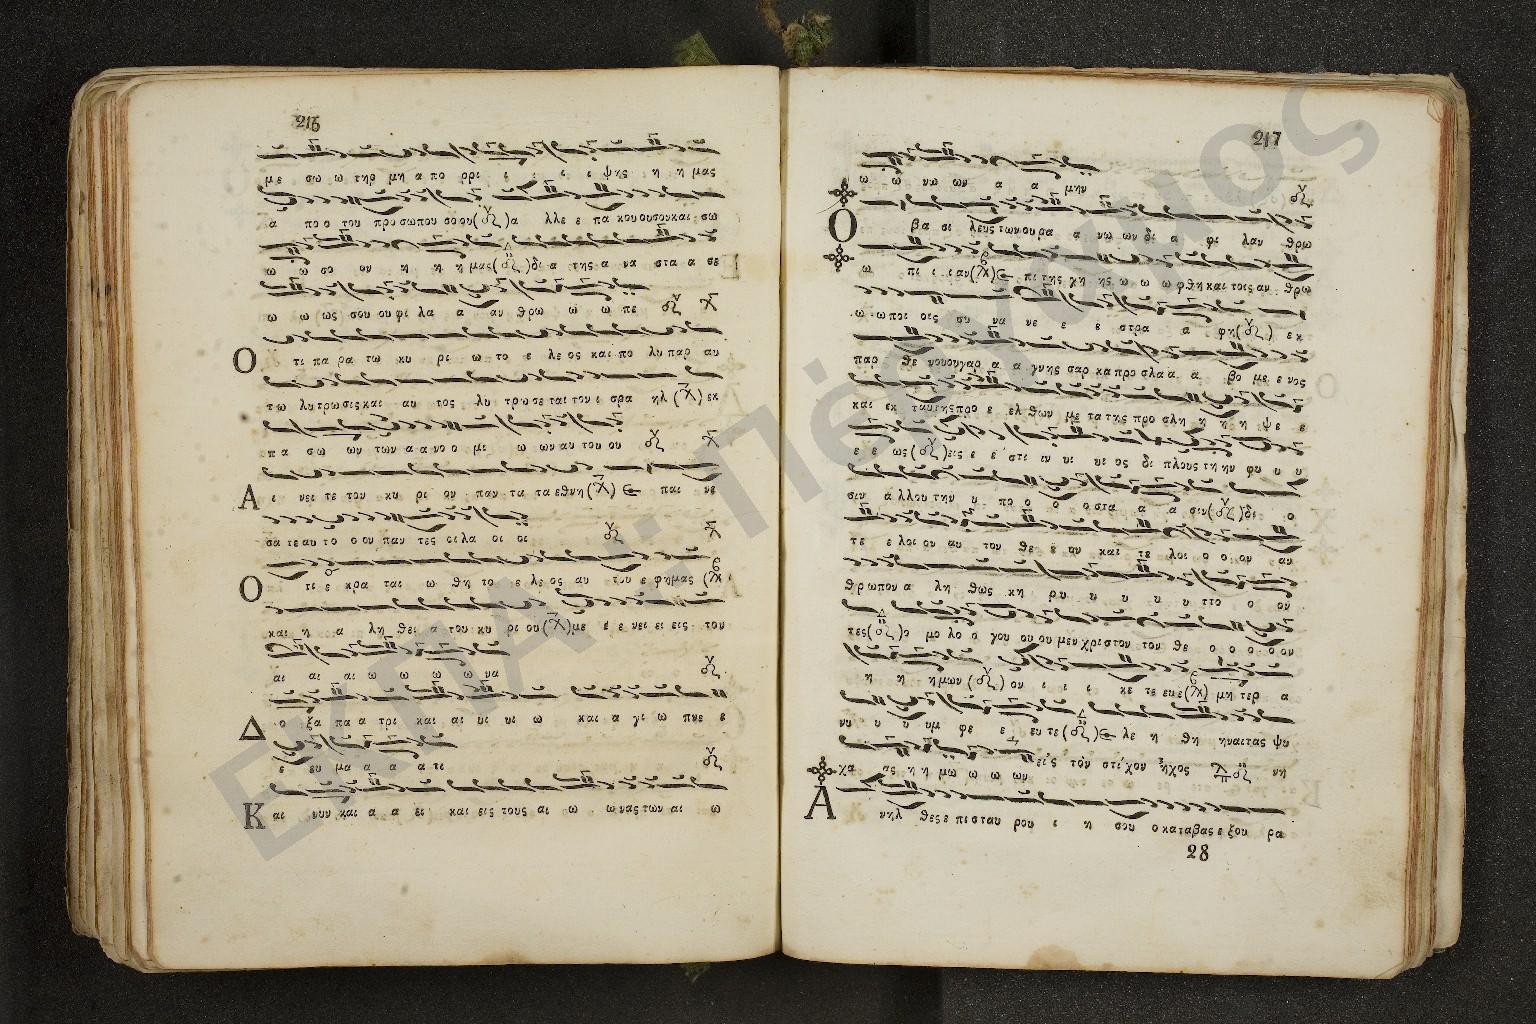 216
με σω ω τηρ μη α πο ρρι ι ι ι ι ψης η η μας
α πο ο του προσωπου σοου( )α λλε ε πα κουουσουκαι σω
ω ω σο ον η η η μας( )δι α της α να στα α σε
ω ω ως σου ου φι λα α αν θρω ω ω πε
Ο τι πα ρα τω κυ ρι ω το ε λε ος και πο λυ παρ αυ
τω λυτρωσις και αυ τος λυ τρωσεται τον ι σρα ηλ ( ) εκ
πα σω ων των α α νο ο μι ω ων αυ του ου
Α ι νει τε τον κυ ρι ον παν τα τα εθνη( ) ε παι νε
σα τε αυ το ο ον παν τες οι λα οι οι
Ο τι ε κρα ται ω θη το ε λε ος αυ του ε φημας (
και η α λη θει α του κυ ρι ου( )με ε ε νει ει εις τον
αι αι αι ω ω ω ω να
Δ ο ξα πα α τρι και αι υι υι ω και α γι ω πνε ε
ε ευ μα α α α τι
Κ αι νυν και α α ει και εις τους αι ω ωνας των αι ω
217
ω ω νω ων α α μην
Ο βα σι λευς των ουρα α νω ων δι α φι λαν θρω
ω πι ι ι αν( ) ε πι της γη ης ω ω ω φθη και τοις αν θρω
ω ωποι οις συ να νε ε ε στρα α φη( ) εκ
παρ θε νουουγαρ α α γνης σαρ κα προσλαα α βο με ε νος
και εκ ταυτηςπρο ε ελ θων με τα της προ σλη η η η ψε ε
ε ε ως( )εις ε ε στι ιν υι υι ος δι πλους τη ην φυ υ υ
σιν α λλου την υ πο ο ο οστα α α σιν( )δι ο
τε ε λει ον αυ τον θε ε ον και τε λει ο ο ον αν
θρωπον α λη θως κη ρυ υ υ υ υ ττο ο ον
τες( )ο μο λο ο γου ου ου μεν χριστον τον θε ο ο ο ο ον
η η η μων ( ) ον ι ι ι κε τε ευε( ) μη τερ α
νυ υ υ υμ φε ε ευ τε( ) ε λε η θη ηναι τας ψυ
χα ας η η μω ω ω ων εἰς τὸν στίχον ἦχος νη
Α νηλ θες ε πι σταυ ρου ι η σου ο καταβας ε ξου ρα
28
ΕΚΠΑ ΙΙ Πέργαμος